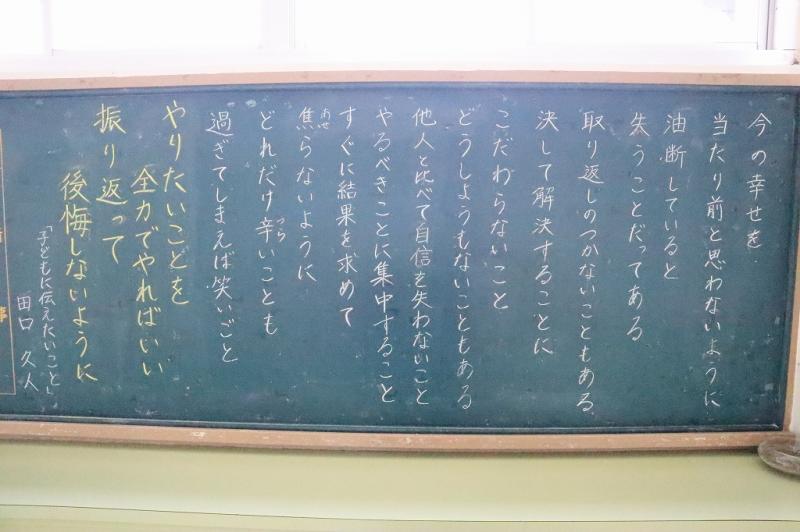 今の幸せを
当たり前と思わないように
油断していると
失うことだってある
取り返しのつかないこともある
決して解決することに
こだわらないこと
どうしようもないこともある
他人と比べて自信を失わないこと
やるべきことに集中すること
すぐに結果を求めて
焦らないように
あせ
どれだけ辛いことも
つら
過ぎてしまえば笑いごと
やりたいことを
全力でやればいい
振り返って
後悔しないように
「子どもに伝えたいこと」
田口 久人